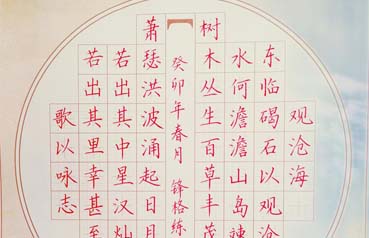 观沧海
东临碣石以观沧
水何澹澹山岛竦
树木丛生百草丰茂
癸卯年春月 锋格练
萧瑟洪波涌起日月
若出其中星汉灿
若出其里幸甚至
歌以咏志